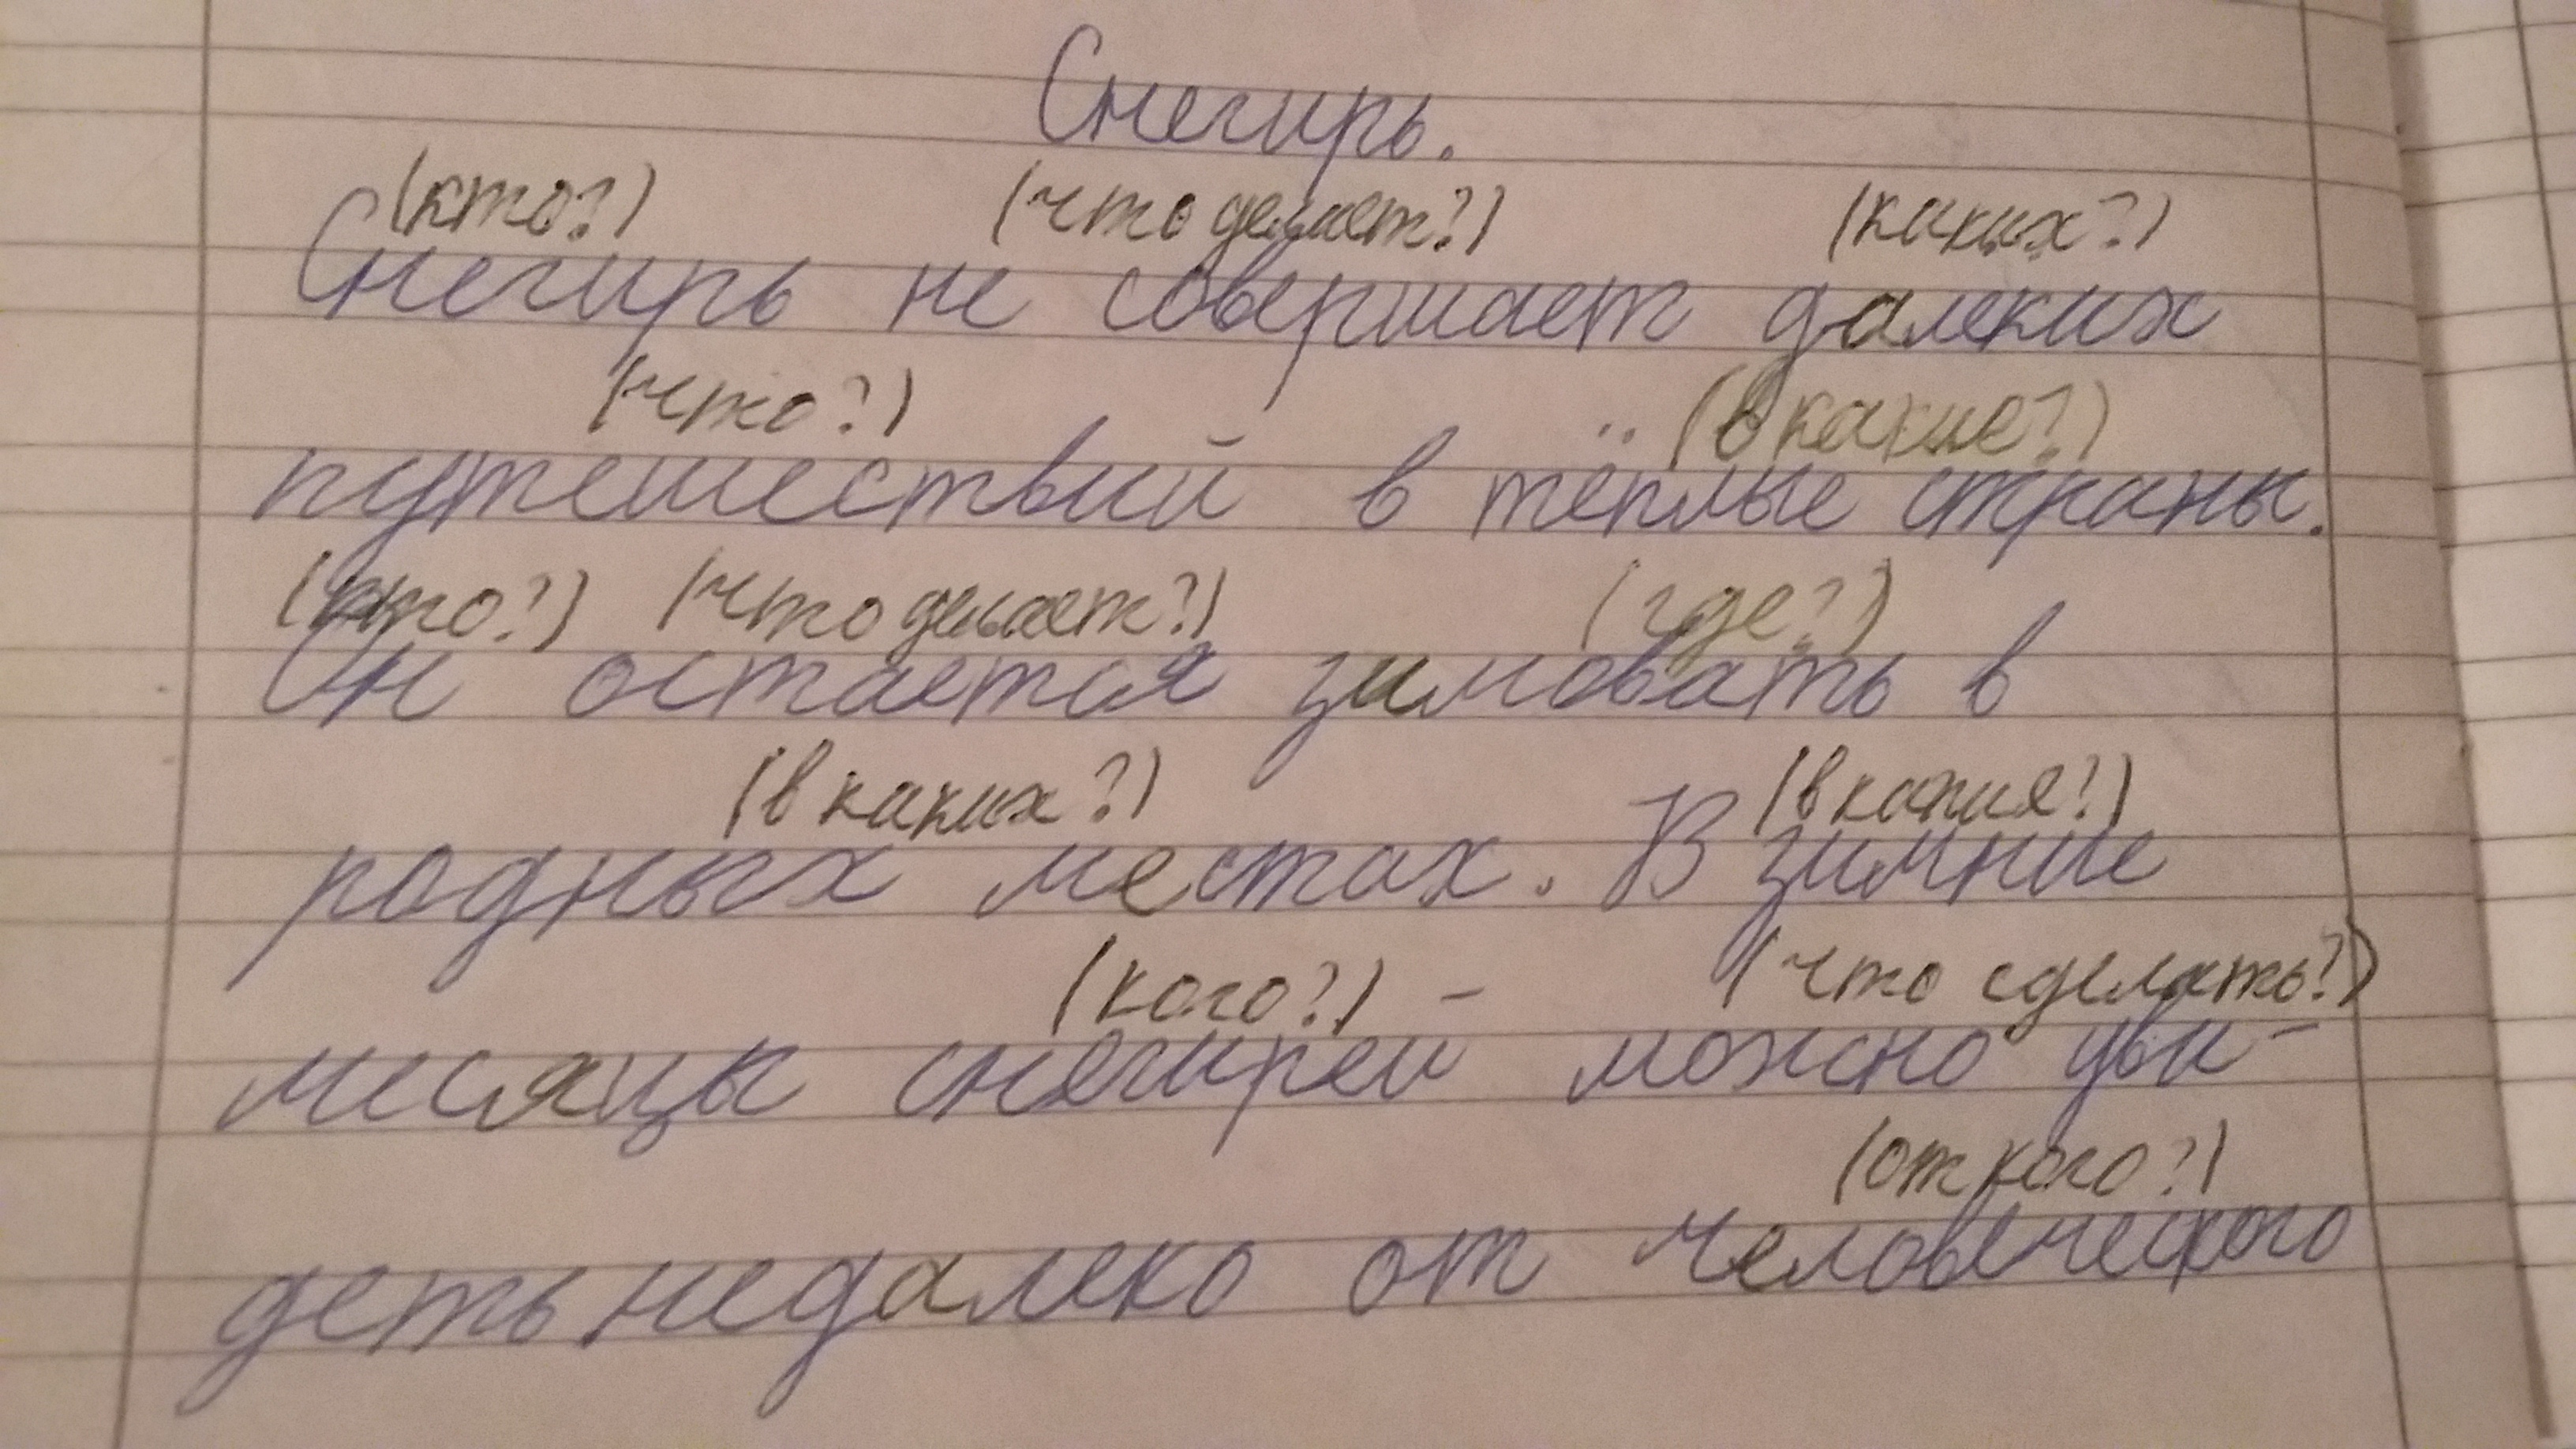 Снегирь.
(кто?) (что делает?) (каких?)
Снегирь не совершает далеких
(что?) (в какие?)
путешествий в тёплые страны.
(кто?) (что делает?) (где?)
Он остается зимовать в
(в каких?)
родных местах. В зимние
(кого?) (что сделать?)
месяцы снегирей можно уви-
(от кого?)
деть недалеко от человеческого